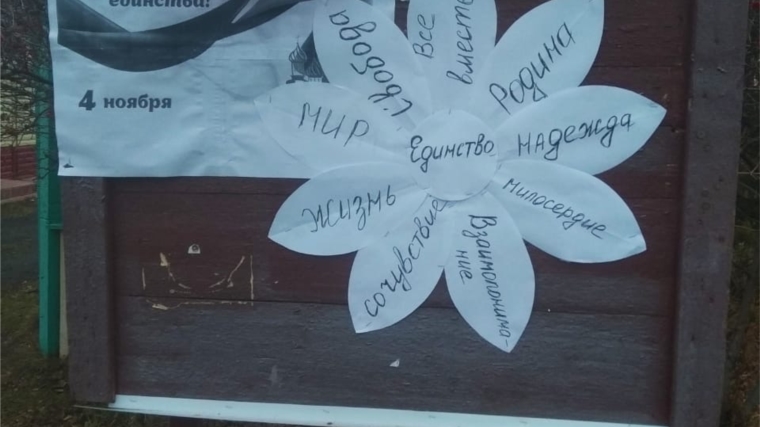 единства!
4 ноября
Свобода
Все
вместе
Родина
Мир
Единство
надежда
Жизнь
милосердие
сочувствие
Взаимопонима-
ние